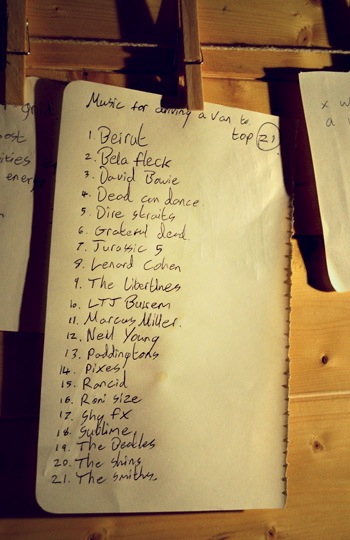 Music for driving a van to.
top 21
1. Beirut
2. Bela fleck
3. David Bowie
4. Dead can dance
5. Dire straits
6. Grateful dead.
7. Jurassic 5
8. Lenard Cohen
9. The Libertines
10. LTJ Bukem
11. Marcus Miller.
12. Neil Young
13. Paddingtons
14. Pixes
15. Rancid
16. Roni size
17. Shy fx
18. Sublime
19. The Beatles
20. The shins
21. The smiths.
ost
ities
energy
x w
a